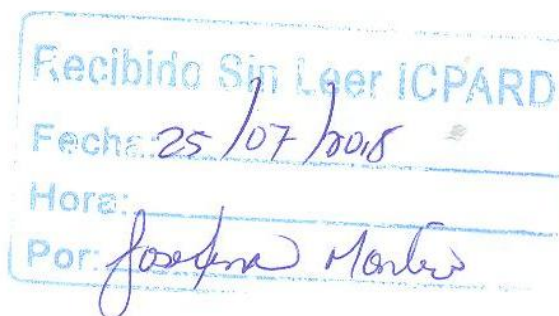 Recibido Sin Leer ICPARD
Fecha: 25/07/2018
Hora:
Por: Josefina